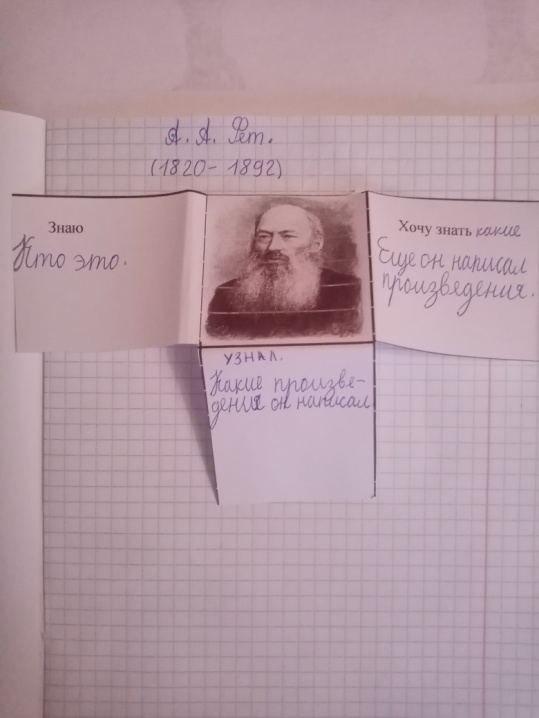 А. А. Фет.
(1820- 1892)
Знаю
Кто это.
Хочу знать какие
Еще он написал
произведения.
УЗНАЛ.
Какие произве-
дения он написал